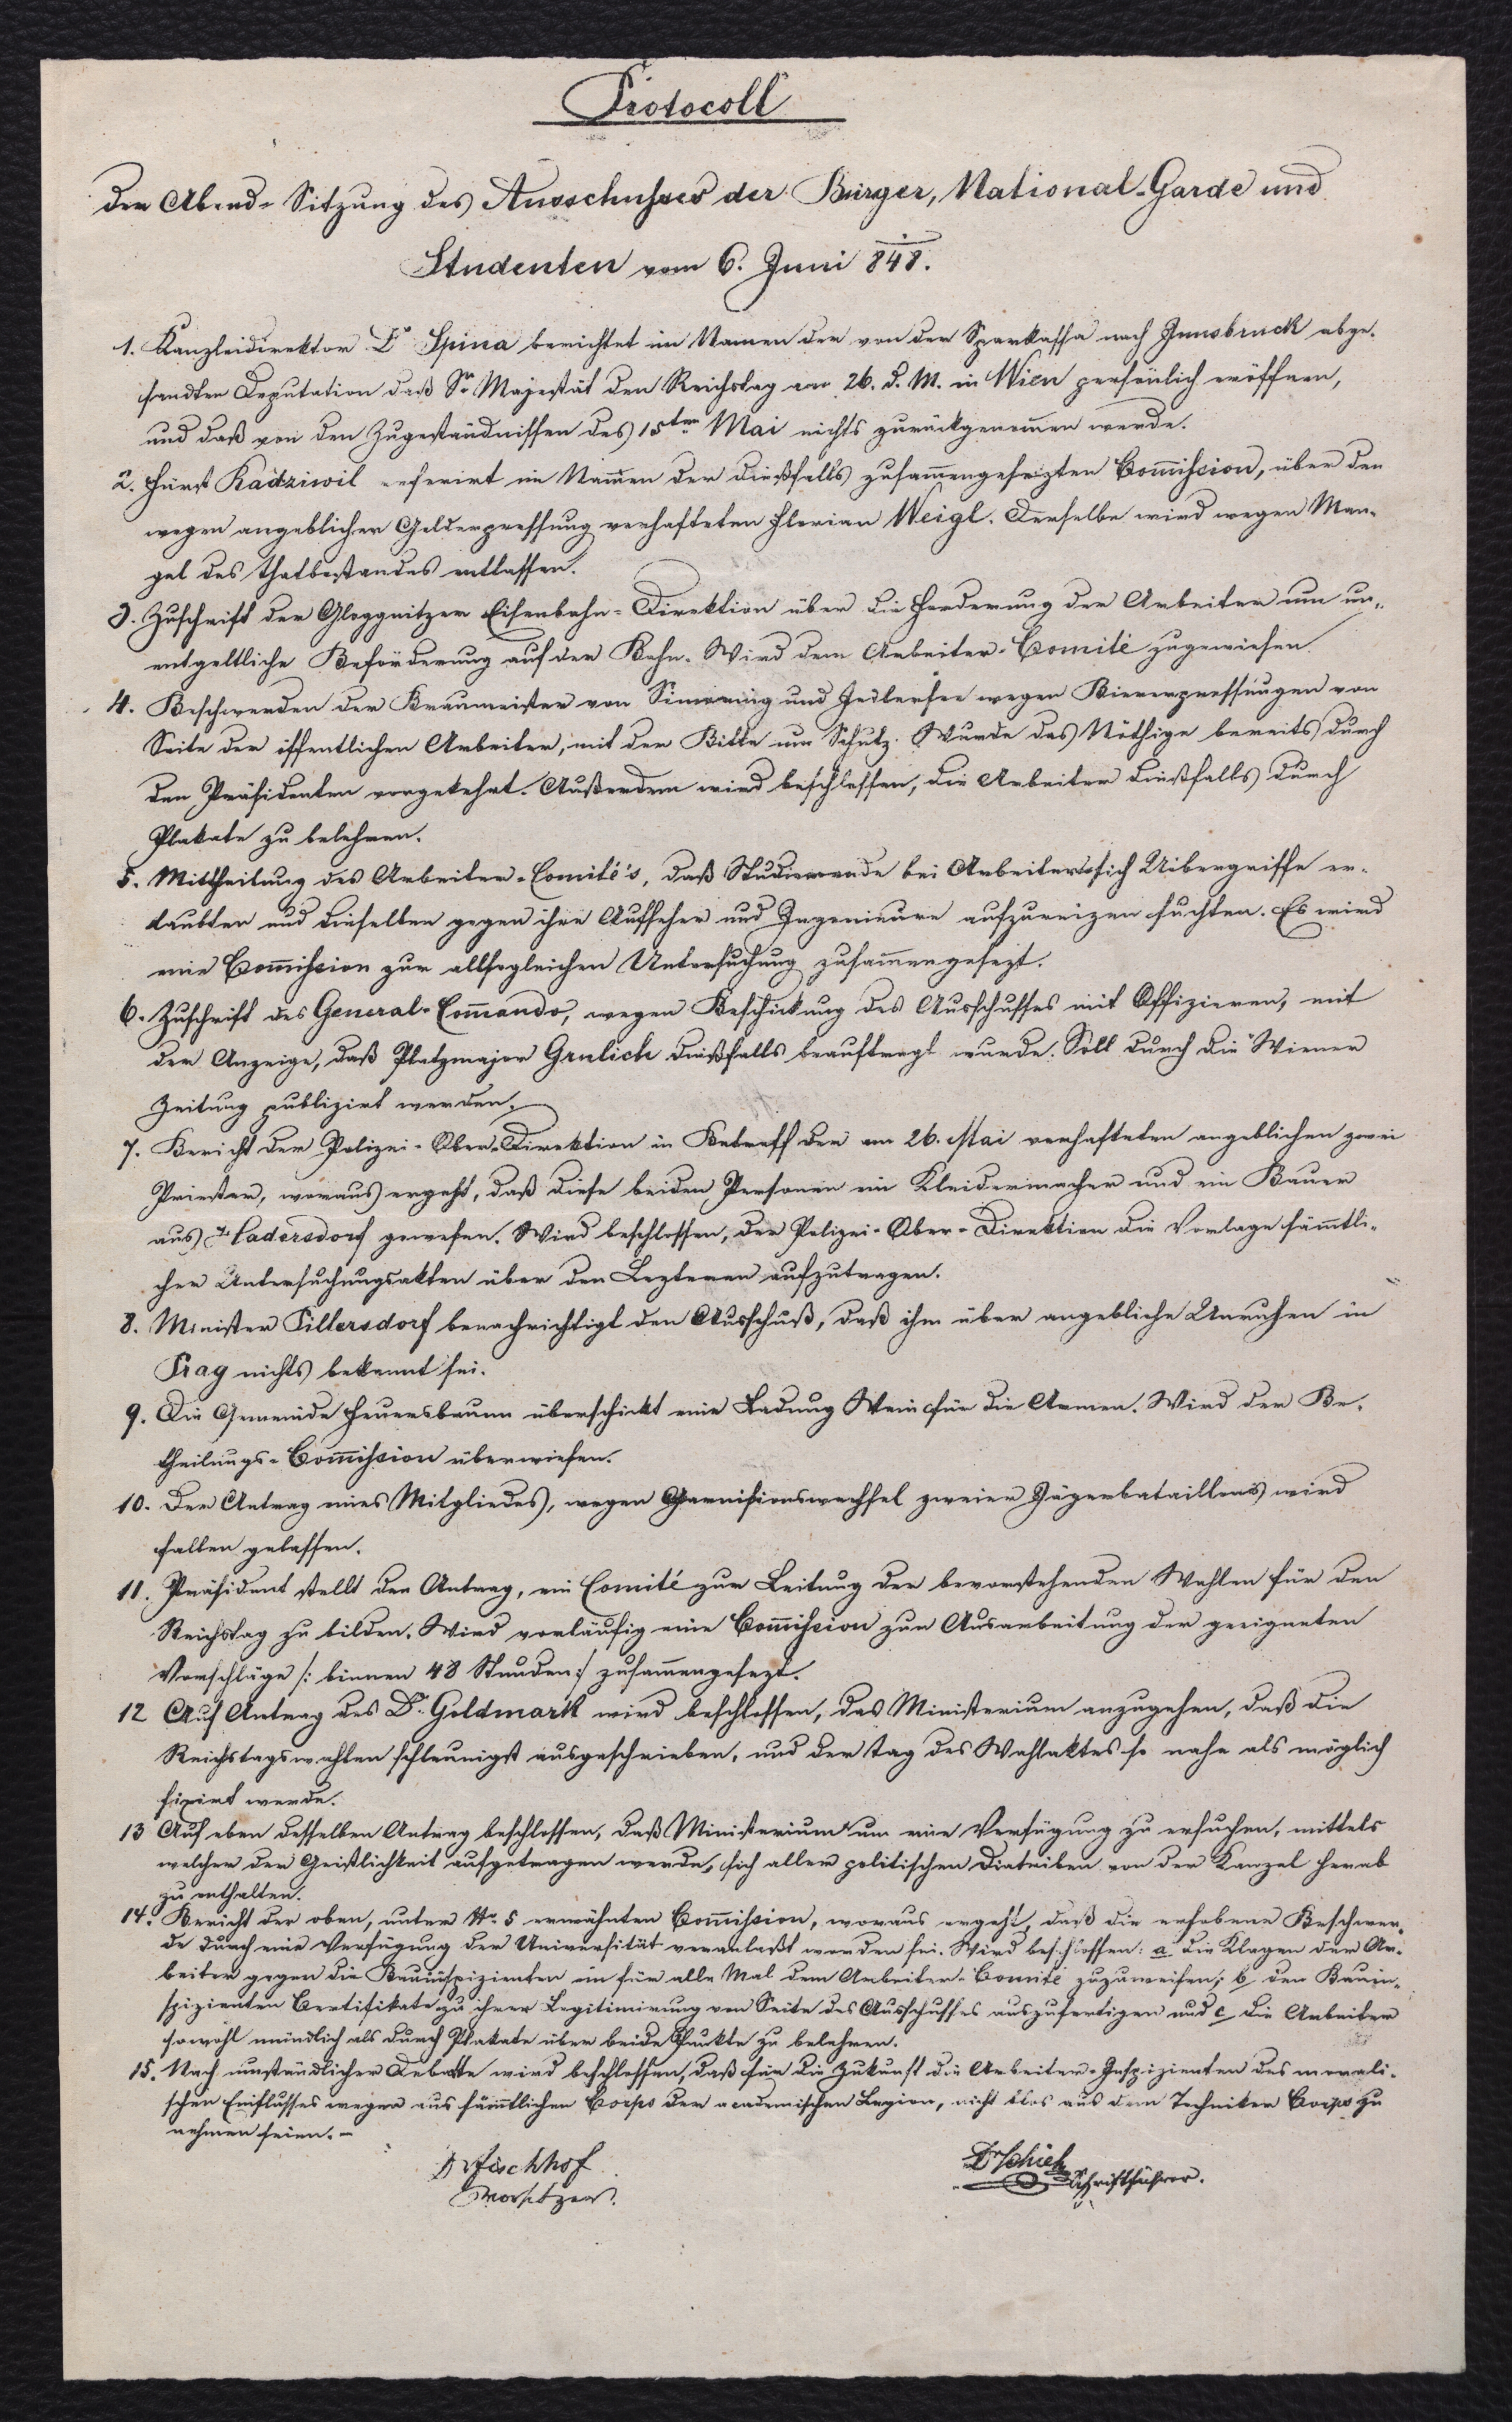 Protocoll
der Abend-Sitzung des Ausschusses der Bürger, National-Garde und
Studenten vom 6. Juni 848.
1. Kanzleidirektor Dr Spina berichtet im Namen der von der Sparkassa nach Innsbruck abge-
sandten Deputation daß Sr Majestät den Reichstag am 26. d. M. in Wien persönlich eröffnen,
und daß von den Zugeständnissen des 15ten Mai nichts zurückgenom̄en werde.
2. Fürst Radziwil referirt im Nam̄en der dießfalls zusam̄engesezten Com̄ission, über den
wegen angeblicher Gelderpressung verhafteten Florian Weigl. Derselbe wird wegen Man-
gel des Thatbestandes entlassen.
3. Zuschrift der Gloggnitzer Eisenbahn-Direktion über die Forderung der Arbeiter um un-
entgeltliche Beförderung auf der Bahn. Wird dem Arbeiter-Comité zugewiesen.
4. Beschwerden der Braumeister von Simmering und Jedlersee wegen Biererpressungen von
Seite der öffentlichen Arbeiter, mit der Bitte um Schutz. Wurde das Nöthige bereits durch
den Präsidenten vorgekehrt. Außerdem wird beschlossen, die Arbeiter dießfalls durch
Plakate zu belehren.
5. Mittheilung des Arbeiter-Comité's, daß Studierende bei Arbeitern sich Uibergriffe er-
laubten und dieselben gegen ihre Aufseher und Ingenieure aufzureizen suchten. Es wird
eine Com̄ission zur allsogleichen Untersuchung zusam̄engesezt.
6. Zuschrift des General-Com̄ando, wegen Beschickung des Ausschusses mit Offizieren, mit
der Anzeige, daß Platzmajor Grulich dießfalls beauftragt wurde. Soll durch die Wiener
Zeitung publizirt werden.
7. Bericht der Polizei-Ober-Direktion in Betreff der am 26. Mai verhafteten angeblichen zwei
Priester, woraus ergeht, daß diese beiden Personen ein Kleidermacher und ein Bauer
aus Hadersdorf gewesen. Wird beschlossen, der Polizei-Ober-Direktion die Vorlage säm̄tli-
cher Untersuchungsakten über den Lezteren aufzutragen.
8. Minister Pillersdorf benachrichtigt den Ausschuß, daß ihm über angebliche Unruhen in
Prag nichts bekannt sei.
9. Die Gemeinde Feuersbrunn überschickt eine Ladung Wein für die Armen. Wird der Be-
theilungs-Com̄ission überwiesen.
10. Der Antrag eines Mitgliedes, wegen Garnisionswechsel zweier Jägerbataillons wird
fallen gelassen.
11. Präsident stellt den Antrag, ein Comité zur Leitung der bevorstehenden Wahlen für den
Reichstag zu bilden. Wird vorläufig eine Com̄ission zur Ausarbeitung der geeigneten
Vorschläge /: binnen 48 Stunden :/ zusam̄engesezt.
12 Auf Antrag des Dr. Goldmark wird beschlossen, das Ministerium anzugehen, daß die
Reichstagswahlen schleunigst ausgeschrieben, und der Tag des Wahlaktes so nahe als möglich
fixirt werde.
13 Auf eben desselben Antrag beschlossen, daß Ministerium um eine Verfügung zu ersuchen, mittels
welcher der Geistlichkeit aufgetragen werde, sich aller politischen Diatriben von der Kanzel herab
zu enthalten.
14. Bericht der oben, unter No. 5 erwähnten Com̄ission, woraus ergeht, daß die erhobene Beschwer-
de durch eine Verfügung der Universität veranlaßt worden sei. Wird beschlossen: a die Klagen der Ar-
beiter gegen die Bauinspizienten ein für alle Mal dem Arbeiter-Comité zuzuweisen; b den Bauin-
spizienten Certifikate zu ihrer Legitimirung von Seite des Ausschusses auszufertigen und c die Arbeiter
sowohl mündlich als durch Plakate über beide Punkte zu belehren.
15. Nach umständlicher Debatte wird beschlossen, daß für die Zukunft die Arbeiter-Inspizienten des morali-
schen Einflusses wegen aus säm̄tlichen Corps der academischen Legion, nicht blos aus dem Techniker Corps zu
nehmen seien.-
Dr Fischhof
Vorsitzer.
Dr Schiel
Schriftführer.